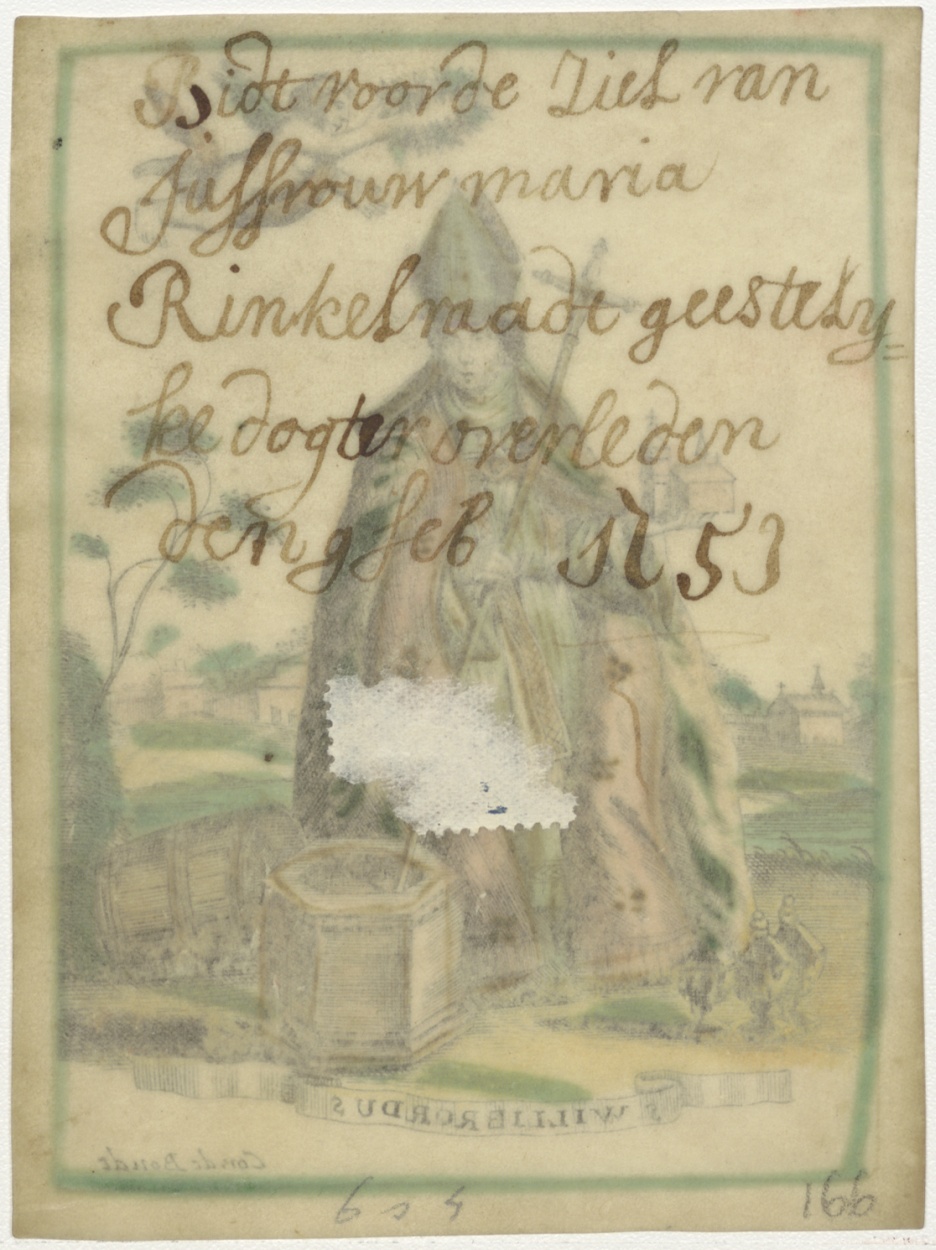 Bidt voor de Ziel van
Juffrouw maria
Rinkelraadt geestely=
ke dogter overleden
den 9 feb 1753
S WILLIBRORDUS
166